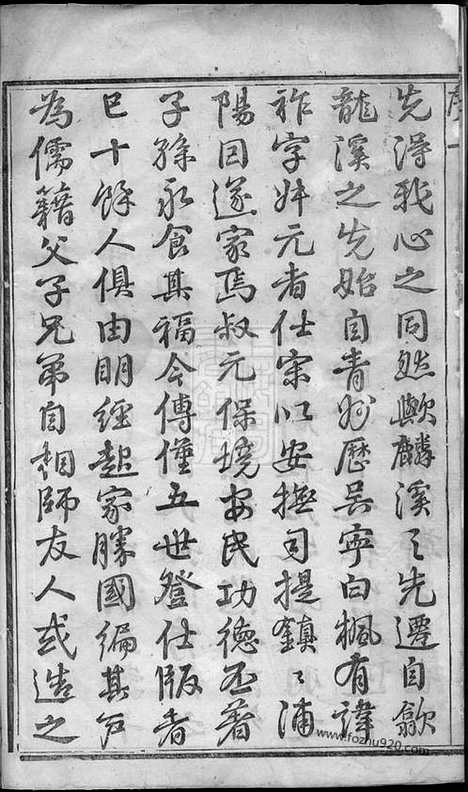 序 一
先得我心之同然歟麟溪之先遷自歙
龍溪之先始自青州歷吳寧白楓有諱
祚字叔元者仕宋以安撫司提鎮鎮浦
陽因遂家焉叔元保境安民功德丕著
子孫永食其福今傳僅五世登仕版者
已十餘人俱由明經起家勝國編其戶
為儒籍父子兄弟自相師友人或造之
www.fozhu920.com